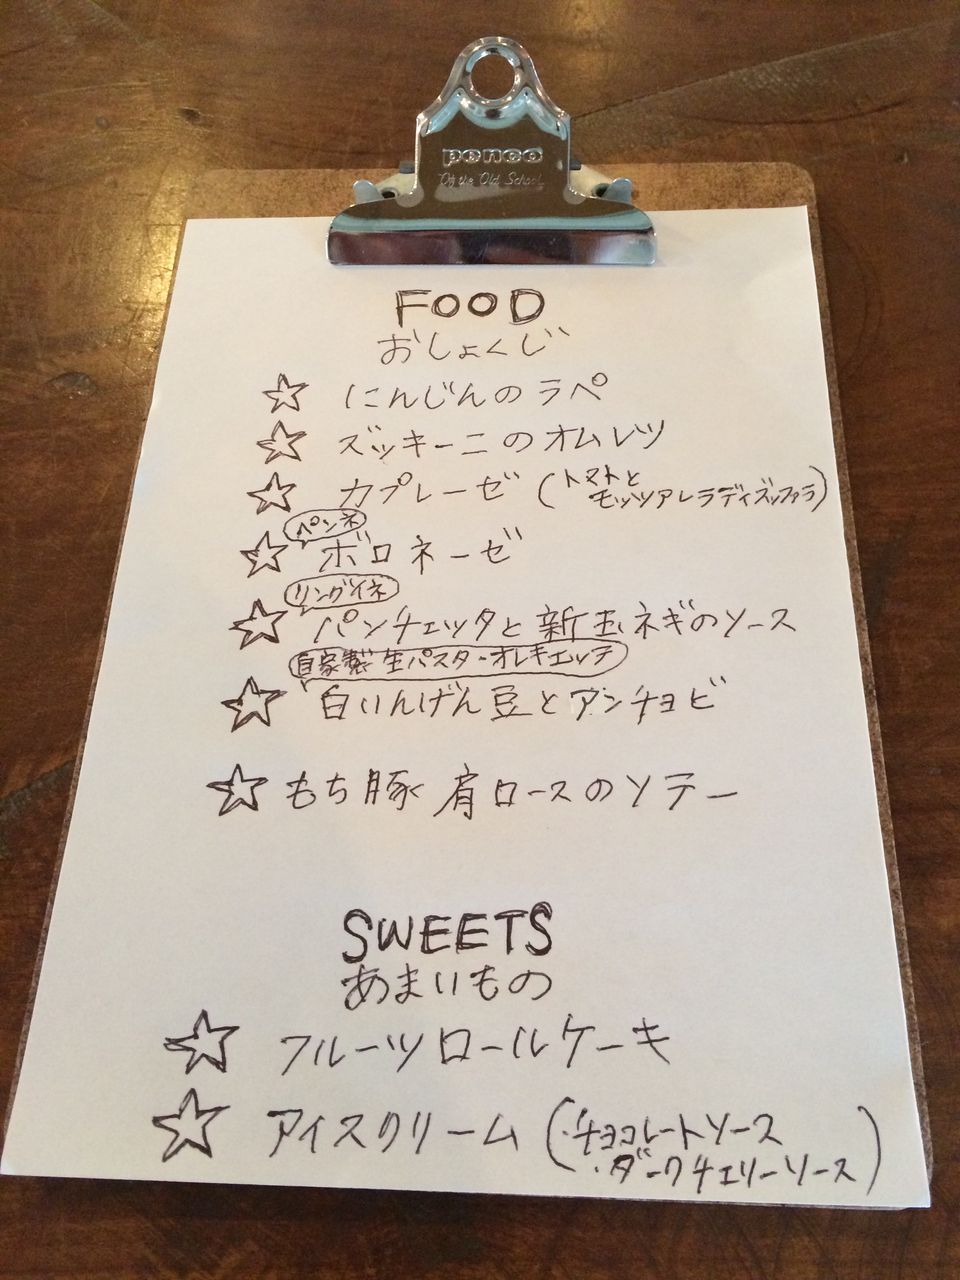 penco
Of the Old School
FOOD
おしょくじ
☆ にんじんのラペ
☆ ズッキーニのオムレツ
☆ カプレーゼ (トマトと
モッツアレラディズッファラ)
ペンネ
☆ ボロネーゼ
リングイネ
☆ パンチェッタと新玉ネギのソース
自家製生パスタ・オレキエッテ
☆ 白いんげん豆とアンチョビ
☆ もち豚肩ロースのソテー
SWEETS
あまいもの
☆ フルーツロールケーキ
☆ アイスクリーム (・チョコレートソース
・ダークチェリーソース)